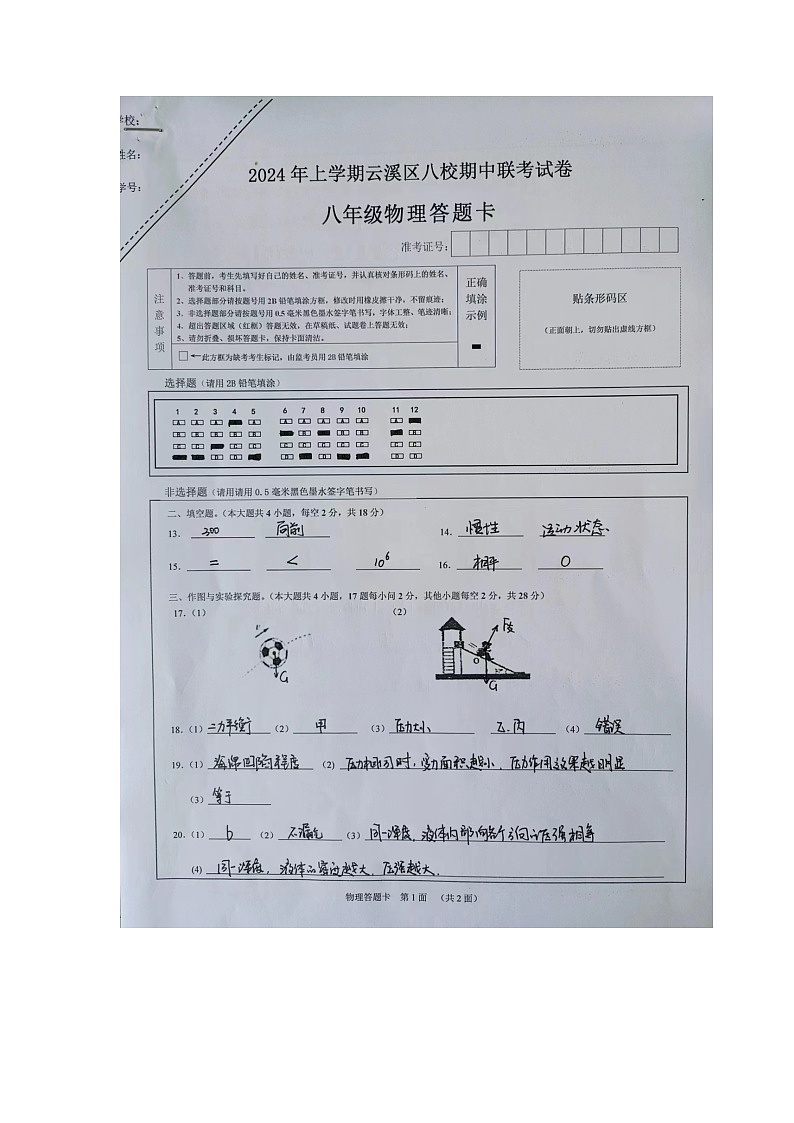 学校:
姓名:
学号:
2024 年上学期云溪区八校期中联考试卷
八年级物理答题卡
准考证号:
注意事项
1、答题前，考生先填写好自己的姓名、准考证号，并认真核对条形码上的姓名、
准考证号和科目。
2、选择题部分请按题号用 2B 铅笔填涂方框，修改时用橡皮擦干净，不留痕迹；
3、非选择题部分请按题号用 0.5 毫米黑色墨水签字笔书写，字体工整、笔迹清晰；
4、超出答题区域（红框）答题无效，在草稿纸、试题卷上答题无效；
5、请勿折叠、损坏答题卡，保持卡面清洁。
□←此方框为缺考考生标记，由监考员用 2B 铅笔填涂
正确
填涂
示例
贴条形码区
（正面朝上，切勿贴出虚线方框）
选择题（请用 2B 铅笔填涂）
1 2 3 4 5 6 7 8 9 10 11 12
非选择题（请用请用 0.5 毫米黑色墨水签字笔书写）
二、填空题。（本大题共 4 小题，每空 2 分，共 18 分）
13. 300 向前 14. 惯性 运动状态
15. = < 10⁶ 16. 相平 0
三、作图与实验探究题。（本大题共 4 小题，17 题每小问 2 分，其他小题每空 2 分，共 28 分）
17.（1） （2）
v
G
F支
O
G
18.（1）二力平衡 （2）甲 （3）压力大小 乙、丙 （4）错误
19.（1）海绵凹陷程度 （2）压力相同时，受力面积越小，压力作用效果越明显
（3）等于
20.（1）b （2）不漏气 （3）同一深度，液体内部向各个方向的压强相等
（4）同一深度，液体的密度越大，压强越大.
物理答题卡 第 1 面 （共 2 面）